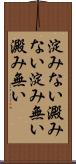 淀みない澱み
ない淀み無い
澱み無い